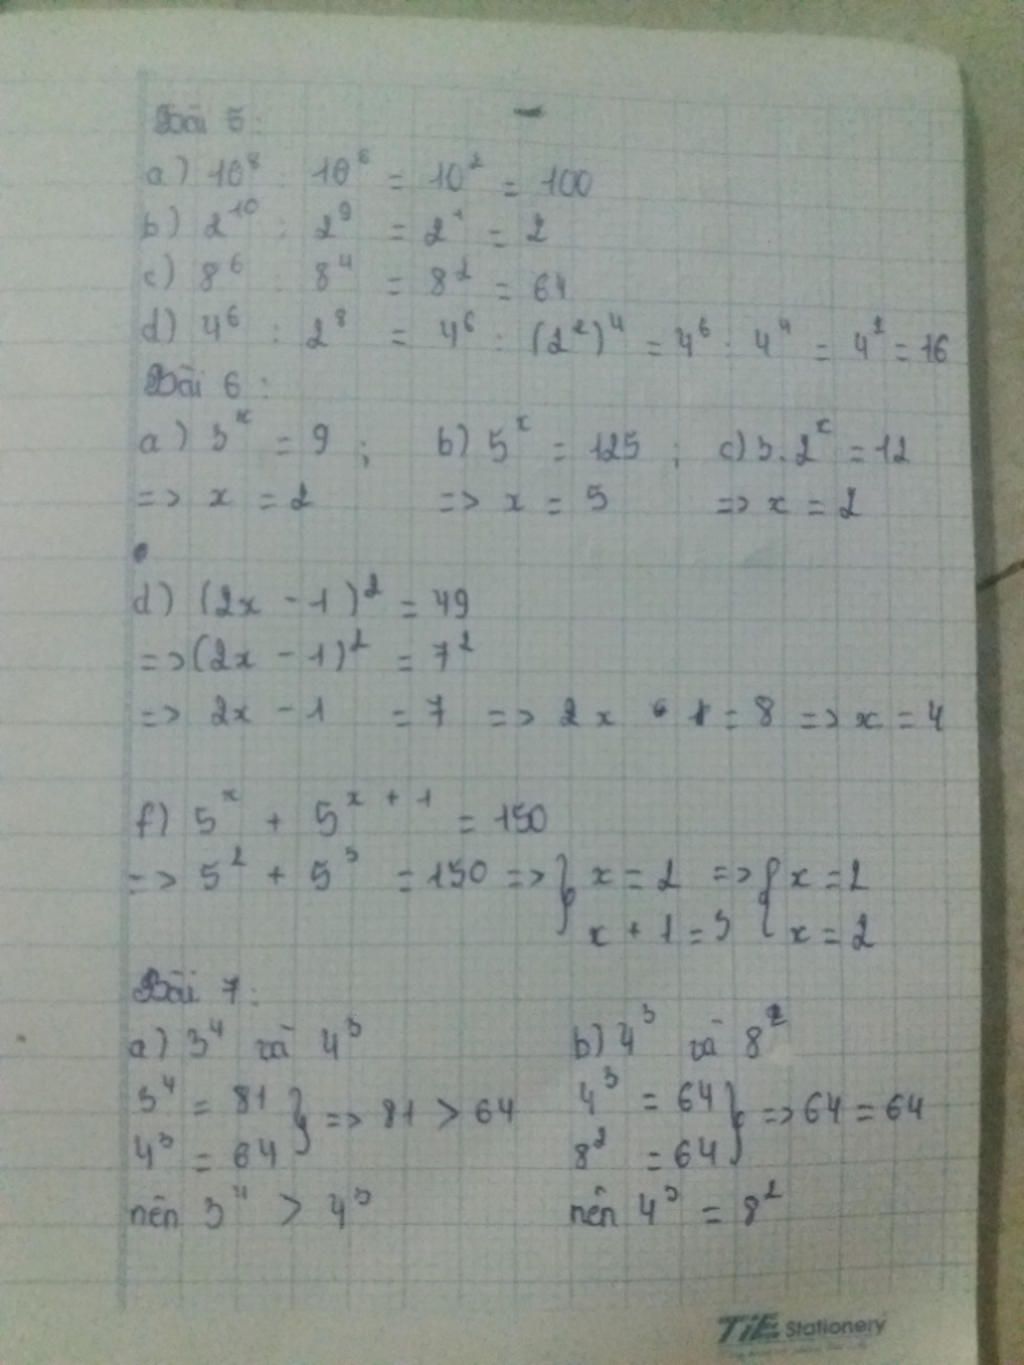 Bài 5:
a) 10⁸ : 10⁶ = 10² = 100
b) 2¹⁰ : 2⁹ = 2¹ = 2
c) 8⁶ : 8⁴ = 8² = 64
d) 4⁶ : 2⁸ = 4⁶ : (2²)⁴ = 4⁶ : 4⁴ = 4² = 16
Bài 6:
a) 3ˣ = 9 ; b) 5ˣ = 125 ; c) 3.2ˣ = 12
=> x = 2 => x = 5 => x = 2
d) (2x - 1)² = 49
=> (2x - 1)² = 7²
=> 2x - 1 = 7 => 2x = 8 => x = 4
f) 5ˣ + 5ˣ⁺¹ = 150
=> 5² + 5³ = 150 => } x = 2 => { x = 2
x + 1 = 3 { x = 2
Bài 7:
a) 3⁴ và 4³ b) 4³ và 8²
3⁴ = 81 } => 81 > 64 4³ = 64 } => 64 = 64
4³ = 64 8² = 64
nên 3⁴ > 4³ nên 4³ = 8²
TiE Stationery